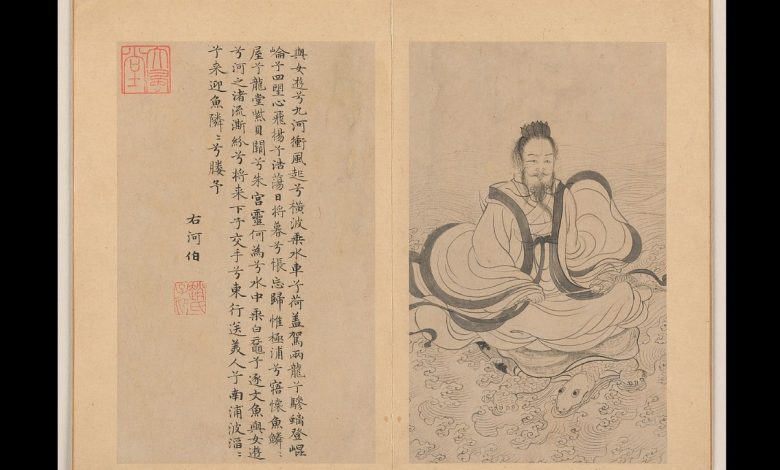 與女遊兮九河衝風起兮橫波乘水車兮荷盖駕兩龍兮驂螭登崐
崘兮四望心飛揚兮浩蕩日將暮兮悵忘歸惟極浦兮寤懷魚鱗〻
屋兮龍堂紫貝闕兮朱宮靈何為兮水中乘白黿兮逐文魚與女遊
兮河之渚流澌紛兮將来下子交手兮東行送美人兮南浦波滔〻
兮来迎魚隣〻兮媵予
右河伯
趙氏子昂